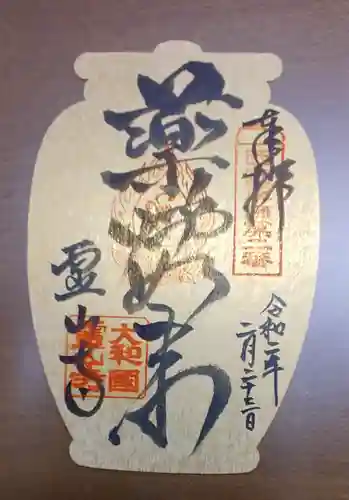 奉拝
薬師如来
霊山寺
令和二年
二月二十三日
大和國